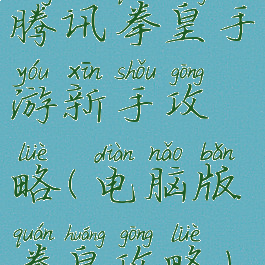 腾讯拳皇手
yóu xīn shǒu gōng
游新手攻
lüè diàn nǎo bǎn
略(电脑版
quán huáng gōng lüè
拳皇攻略)